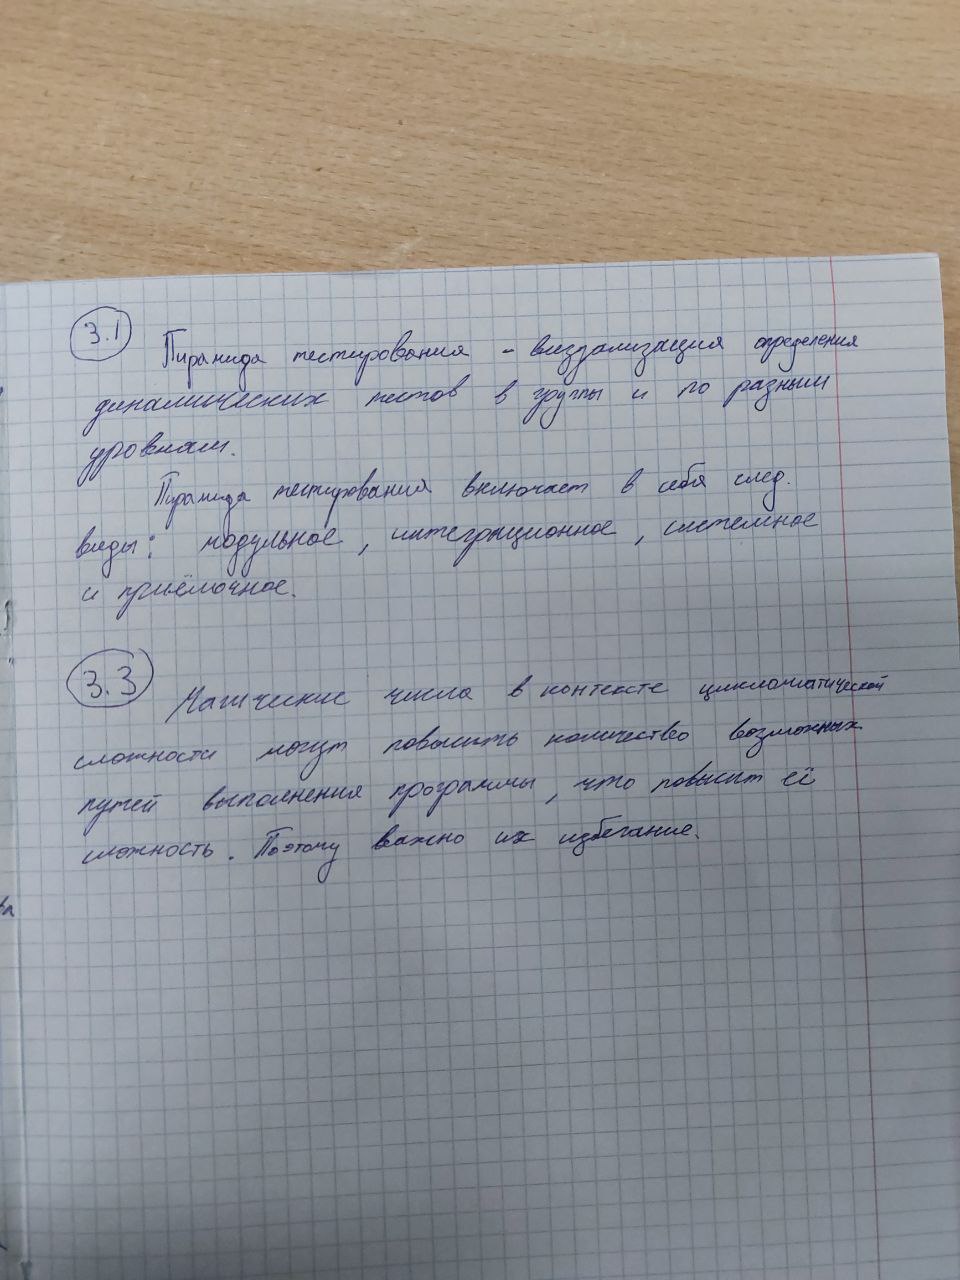 3.1 Пирамида тестирования - визуализация определения
динамических тестов в группы и по разным
уровням.
Пирамида тестирования включает в себя след.
виды: модульное, интеграционное, системное
и приёмочное.
3.3 Магические числа в контексте цикломатической
сложности могут повысить количество возможных
путей выполнения программы, что повысит её
сложность. Поэтому важно их избегание.